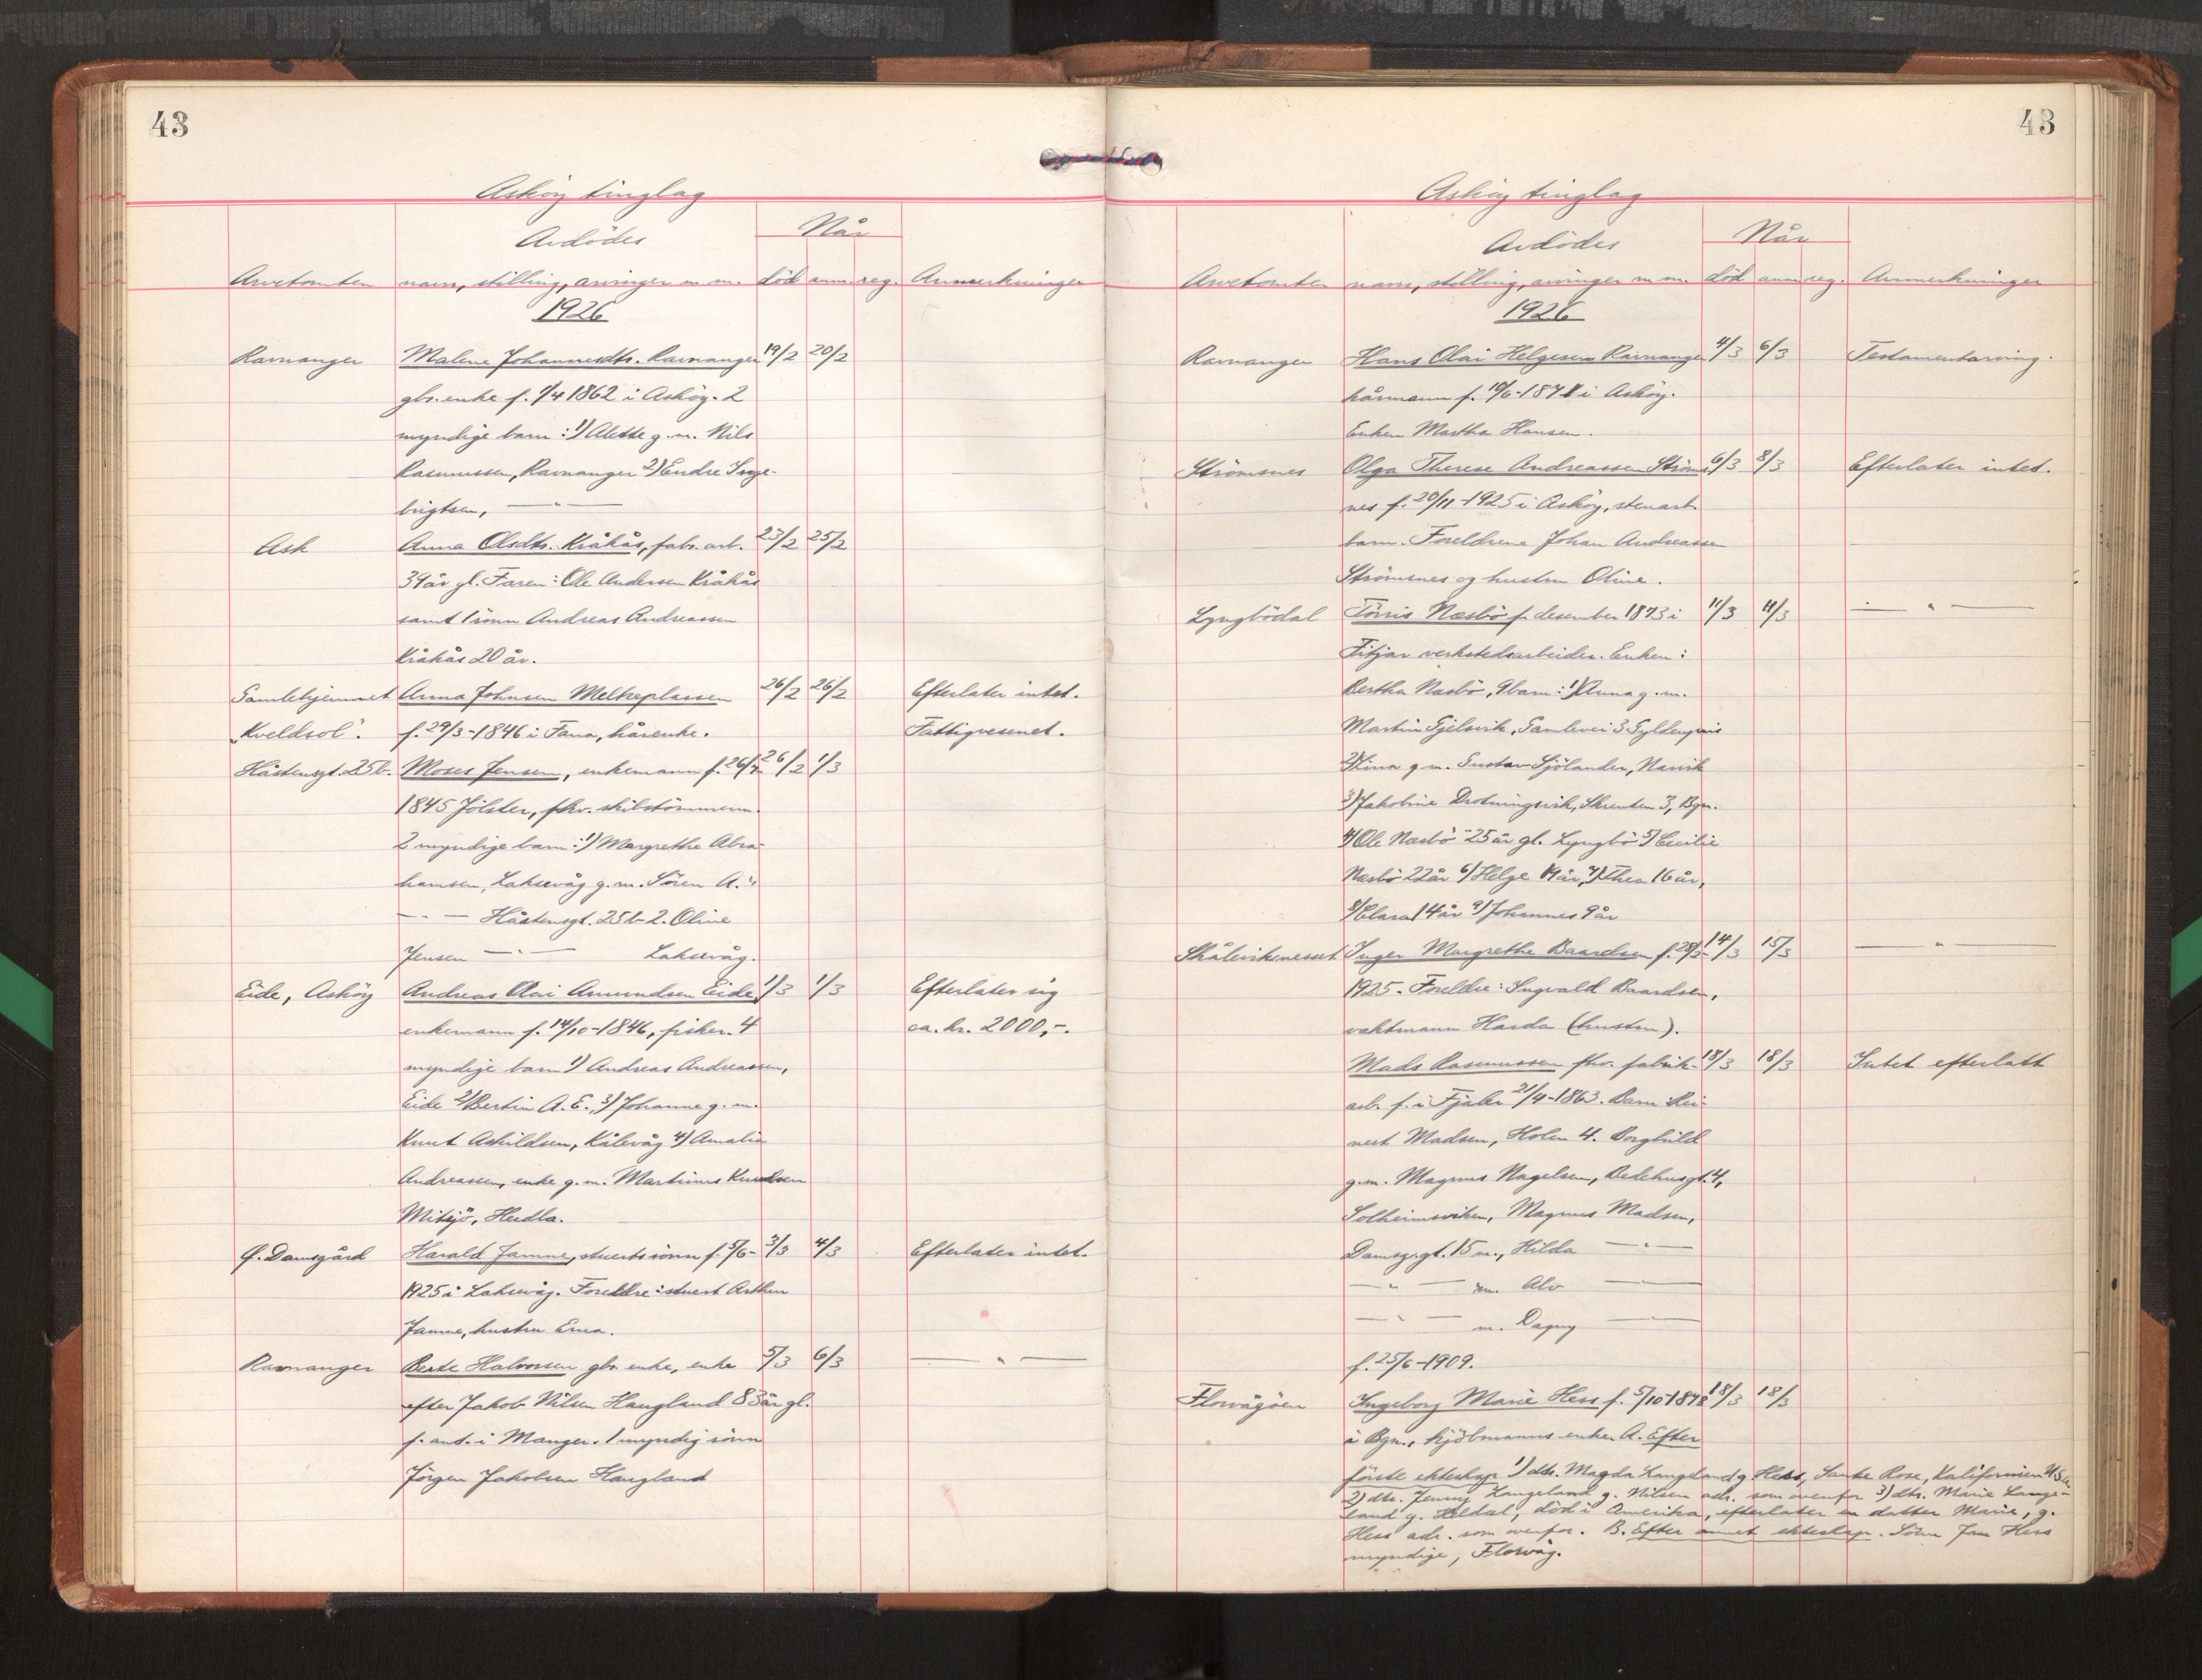 43
Askøy tinglag
Avdødes
Når
Arvetomten navn, stilling, arvinger m. m. död anm. reg. Anmerkninger
1926
Ravnanger Malene Johannesdtr. Ravnanger 19/2 20/2
gbr. enke f. 1/4 1862 i Asköy. 2
myndige barn: 1) Alette g. m. Nils
Rasmussen, Ravnanger 2) Endre Inge-
brigtsen, — " —
Ask Anna Olsdtr. Kråkås, fabr. arb. 23/2 25/2
39 år gl. Faren: Ole Andersen Kråkås
samt 1 sönn Andreas Andreassen
Kråkås 20 år.
Gamlehjemmet Anna Johnsen Melkeplassen 26/2 26/2 Efterlater intet.
"Kveldsol". f. 29/3-1846 i Fana, kårenke. Fattigvesenet.
Håstensgt. 25 b. Moses Jensen, enkemann f. 26/7- 26/2 1/3
1845 Jölster, fhv. skibstömmerm.
2 myndige barn: 1) Margrethe Abra-
hamsen, Laksevåg g. m. Sören A.
— " — Håstensgt. 25 b 2. Oline
Jensen — " — Laksevåg.
Eide, Asköy Andreas Olai Amundsen Eide 1/3 1/3 Efterlater sig
enkemann f. 14/10-1846, fisker. 4 ca. kr. 2000,-.
myndige barn 1) Andreas Andreassen,
Eide 2) Bertin A. E., 3) Johanne g. m.
Knut Askildsen, Kålevåg 4) Amalie
Andreassen, enke g. m. Martinus Knudsen
Mitsjö, Herdla.
G. Damsgård Harald Jamne, stuerts sönn f. 5/6- 3/3 4/3 Efterlater intet.
1925 i Laksevåg. Foreldre: stuert Arthur
Jamne, hustru Erna.
Ravnanger Berte Halvorsen gbr. enke, enke 5/3 6/3 — " —
efter Jakob Nilsen Haugland 83 år gl.
f. ant. i Manger. 1 myndig sönn
Jörgen Jakobsen Haugland
43
Asköy tinglag
Avdödes
Når
Arvetomten navn, stilling, arvinger m. m. död anm. reg. Anmerkninger
1926
Ravnanger Hans Olai Helgesen Ravnanger 4/3 6/3 Testamentarving.
kårmann f. 10/6-1871 i Asköy.
Enken Martha Hansen.
Strömsnes Olga Therese Andreassen Ströms- 6/3 8/3 Efterlater intet.
nes f. 20/11-1925 i Asköy, stenarb.
barn. Foreldrene Johan Andreassen
Strömsnes og hustru Oline.
Lyngbödal Tönis Næsbö f. desember 1873 i 11/3 11/3 — " —
Fitjar verkstedsarbeider. Enken:
Bertha Næsbö, 9 barn: 1) Anna g. m.
Martin Gjelsvik, Gamlevei 3 Gyldenpris
2) Lina g. m. Gustav Sjölander, Narvik
3) Jakobine Drotningsvik, Skrenten 3, Bgn.
4) Ole Næsbö 25 år gl. Lyngbö 5) Cecilie
Næsbö 22 år 6) Helge 19 år, 7) Thea 16 år,
8) Clara 14 år 9) Johannes 9 år
Skåleviksneset Inger Margrethe Baardsen f. 28/2- 14/3 15/3 — " —
1925. Foreldre: Ingvald Baardsen,
vaktmann Harda (hustru).
Mads Rasmussen fhv. fabrik- 18/3 18/3 Intet efterlatt
arb. f. i Fjaler 21/4-1863. Barn: Rei-
nert Madsen, Holen 4. Borghild
g. m. Magnus Nagelsen, Bedehusgt. 4,
Solheimsviken, Magnus Madsen,
Damsg. gt. 15 m., Hilda — " —
— " — m. Alv —
— " — m. Dagny — " —
f. 25/6-1909.
Florvågöen Ingeborg Marie Hess f. 5/10-1878 18/3 18/3
i Bgn., kjöbmanns enke. A. Efter
förste ekteskap 1) dtr. Magda Langeland g. Hess, Santa Rose, Kalifornien U.S.A.
2) dtr. Jenny Langeland g. Nilsen adr. som ovenfor 3) dtr. Marie Lange-
land g. Heldal, död i Amerika, efterlater en datter Marie, g.
Hess adr. som ovenfor. B. Efter annet ekteskap. Sönn Jan Hess
myndige, Florvåg.